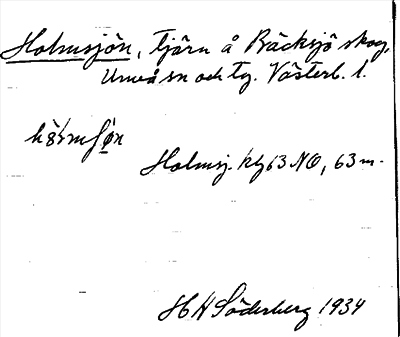 Holmsjön, tjärn å Bäcksjö skog,
Umeå sn och tg. Västerb. l.
Holmsj. kbl 63 NO, 63 m.
H H Söderberg 1934